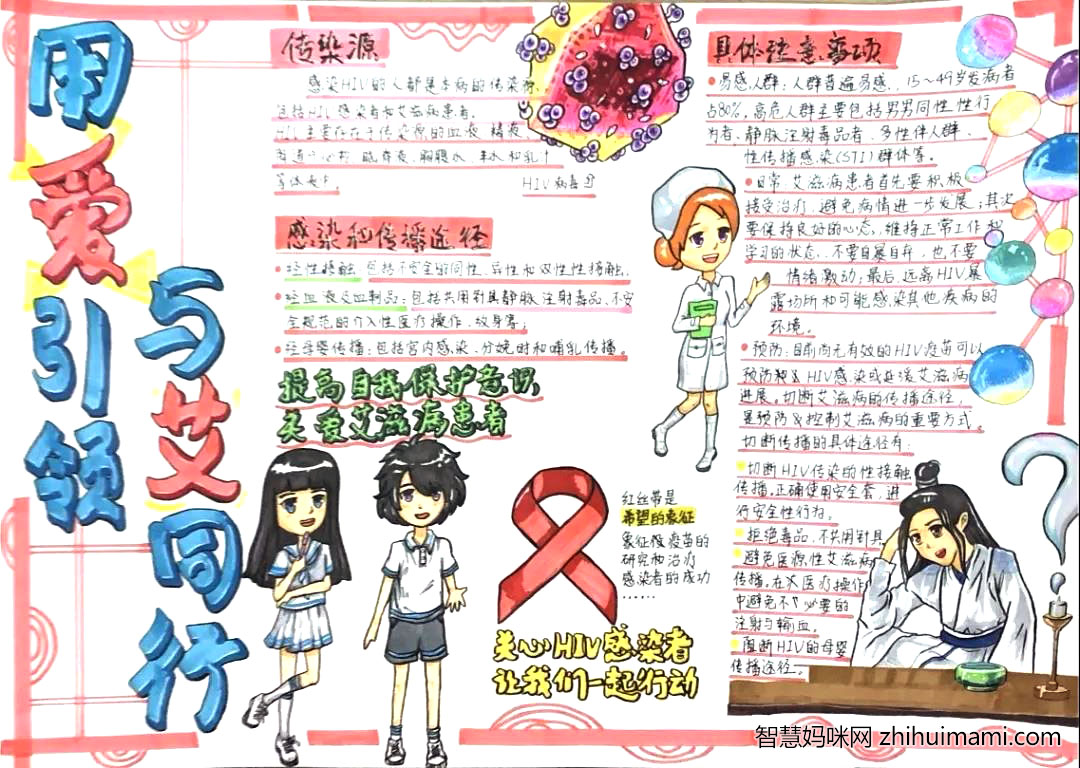 用爱引领
与艾同行
传染源
感染HIV的人都是本病的传染源,
包括HIV感染者和艾滋病患者。
HIV主要存在于传染源的血液、精液、
胸腹水、羊水和乳汁
等体液中。
HIV病毒
感染和传播途径
经性接触:包括不安全的同性、异性和双性性接触。
经血液及血制品:包括共用针具静脉注射毒品、不安
全规范的介入性医疗操作、纹身等;
经母婴传播:包括宫内感染、分娩时和哺乳传播。
提高自我保护意识
关爱艾滋病患者
红丝带是
希望的象征
象征像疫苗的
研究和治疗
感染者的成功
……
关心HIV感染者
让我们一起行动
具体注意事项
易感人群:人群普遍易感。15~49岁发病者
占80%,高危人群主要包括男男同性性行
为者、静脉注射毒品者、多性伴人群、
性传播感染(STI)群体等。
日常:艾滋病患者首先要积极
接受治疗,避免病情进一步发展;其次
要保持良好的心态,维持正常工作和
学习的状态,不要自暴自弃,也不要
情绪激动;最后,远离HIV暴
露场所和可能感染其他疾病的
环境。
预防:目前尚无有效的HIV疫苗可以
预防 HIV感染或延缓艾滋病
进展。切断艾滋病的传播途径,
是预防&控制艾滋病的重要方式。
切断传播的具体途径有:
切断HIV传染的性接触
传播,正确使用安全套,进
行安全性行为。
拒绝毒品,不共用针具
避免医源性艾滋病
传播,在 医疗操作
中避免不必要的
注射与输血。
阻断HIV的母婴
传播途径。
智慧妈咪网 zhihuimami.com